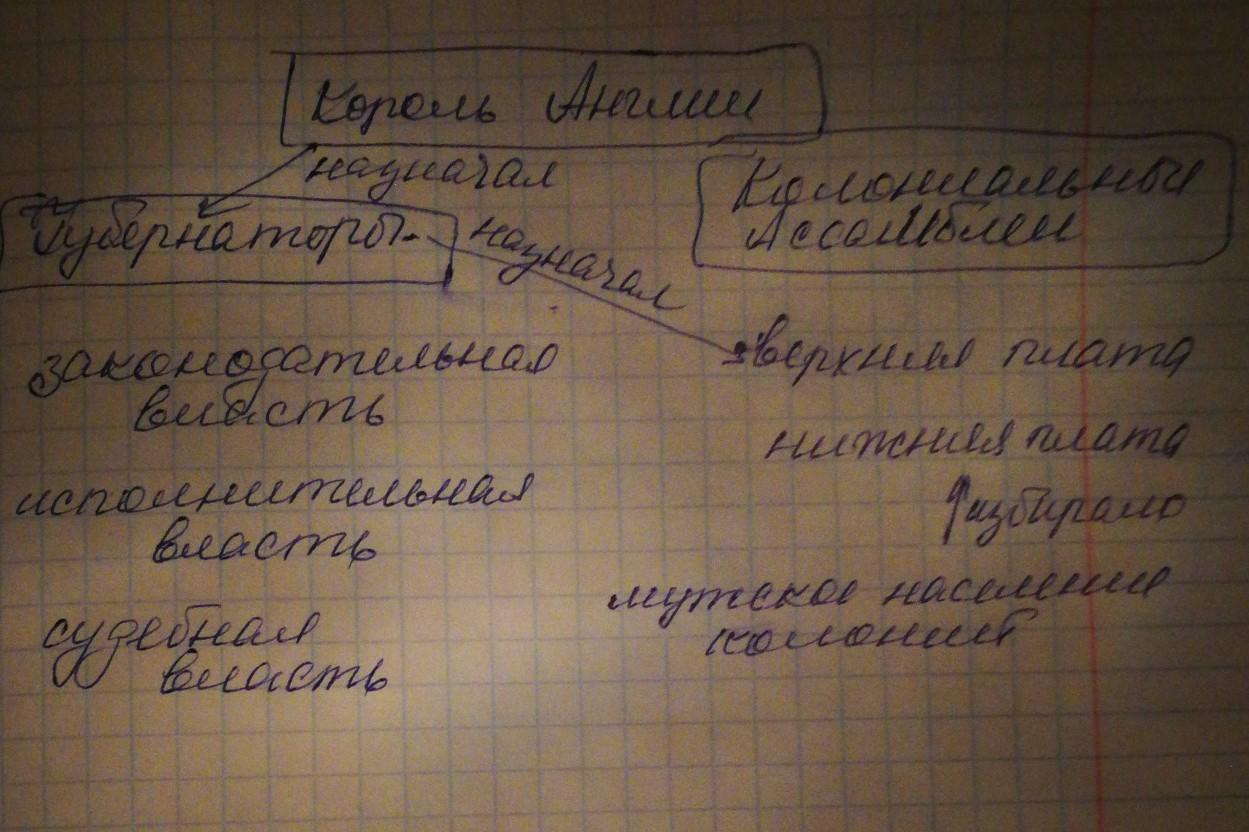 Король Англии
назначал
Колониальные
Ассамблеи
Губернаторы
назначал
законодательная
власть
верхняя плата
нижняя плата
исполнительная
власть
избирало
мужское население
колоний
судебная
власть